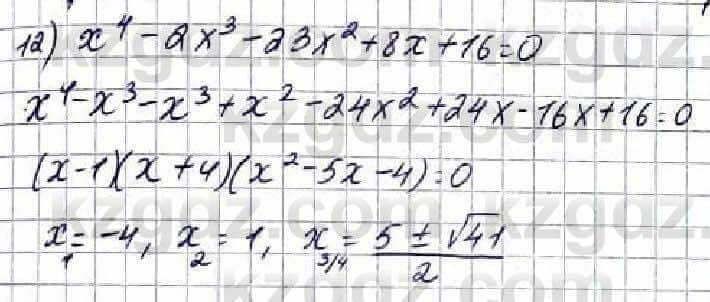 12) x⁴ - 2x³ - 23x² + 8x + 16 = 0
x⁴ - x³ - x³ + x² - 24x² + 24x - 16x + 16 = 0
(x - 1)(x + 4)(x² - 5x - 4) = 0
x₁ = -4, x₂ = 1, x₃/₄ = (5 ± √41)/2
kzgdz.com